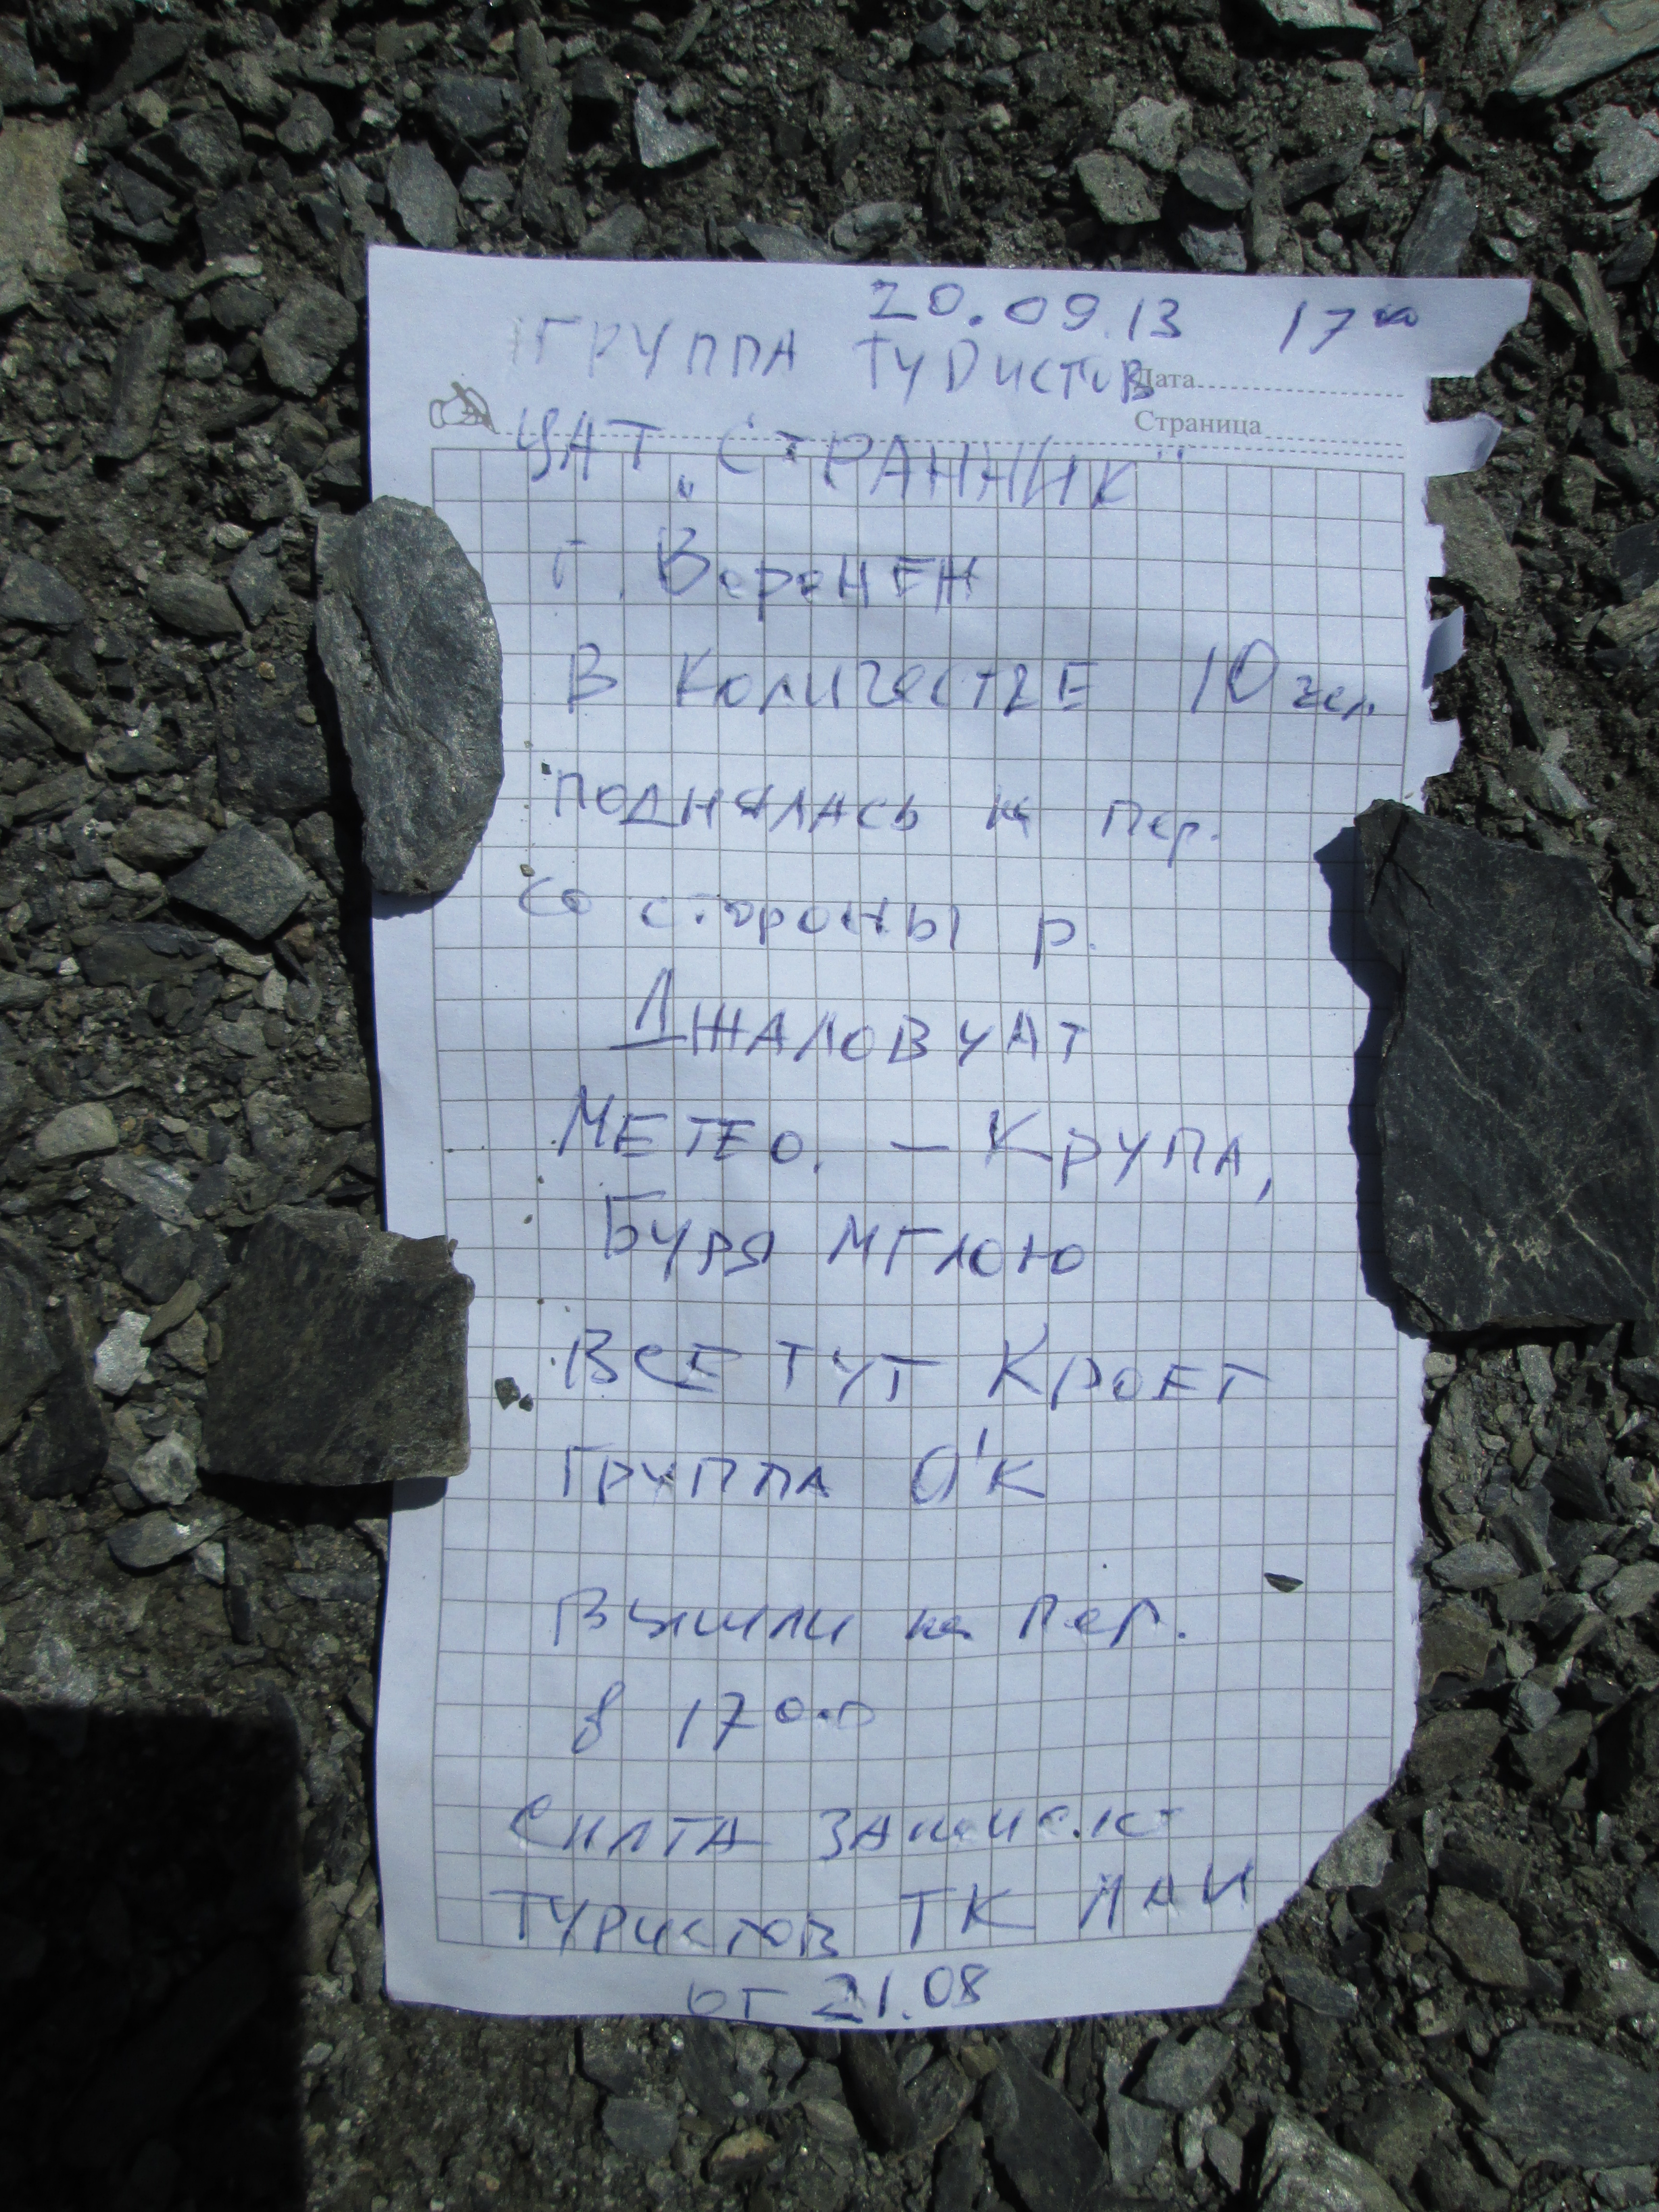 20.09.13 17⁰⁰
ГРУППА ТУРИСТОВ
Дата
Страница
ЦАТ „СТРАННИК"
г. Воронеж
В количестве 10 чел.
поднялась на пер.
со стороны р.
Джаловчат
МЕТЕО. – Крупа,
Буря мглою
Все тут кроет
Группа О'К
Вышли на пер.
в 17 0.0
Снята
туристов ТК МАИ
от 21.08